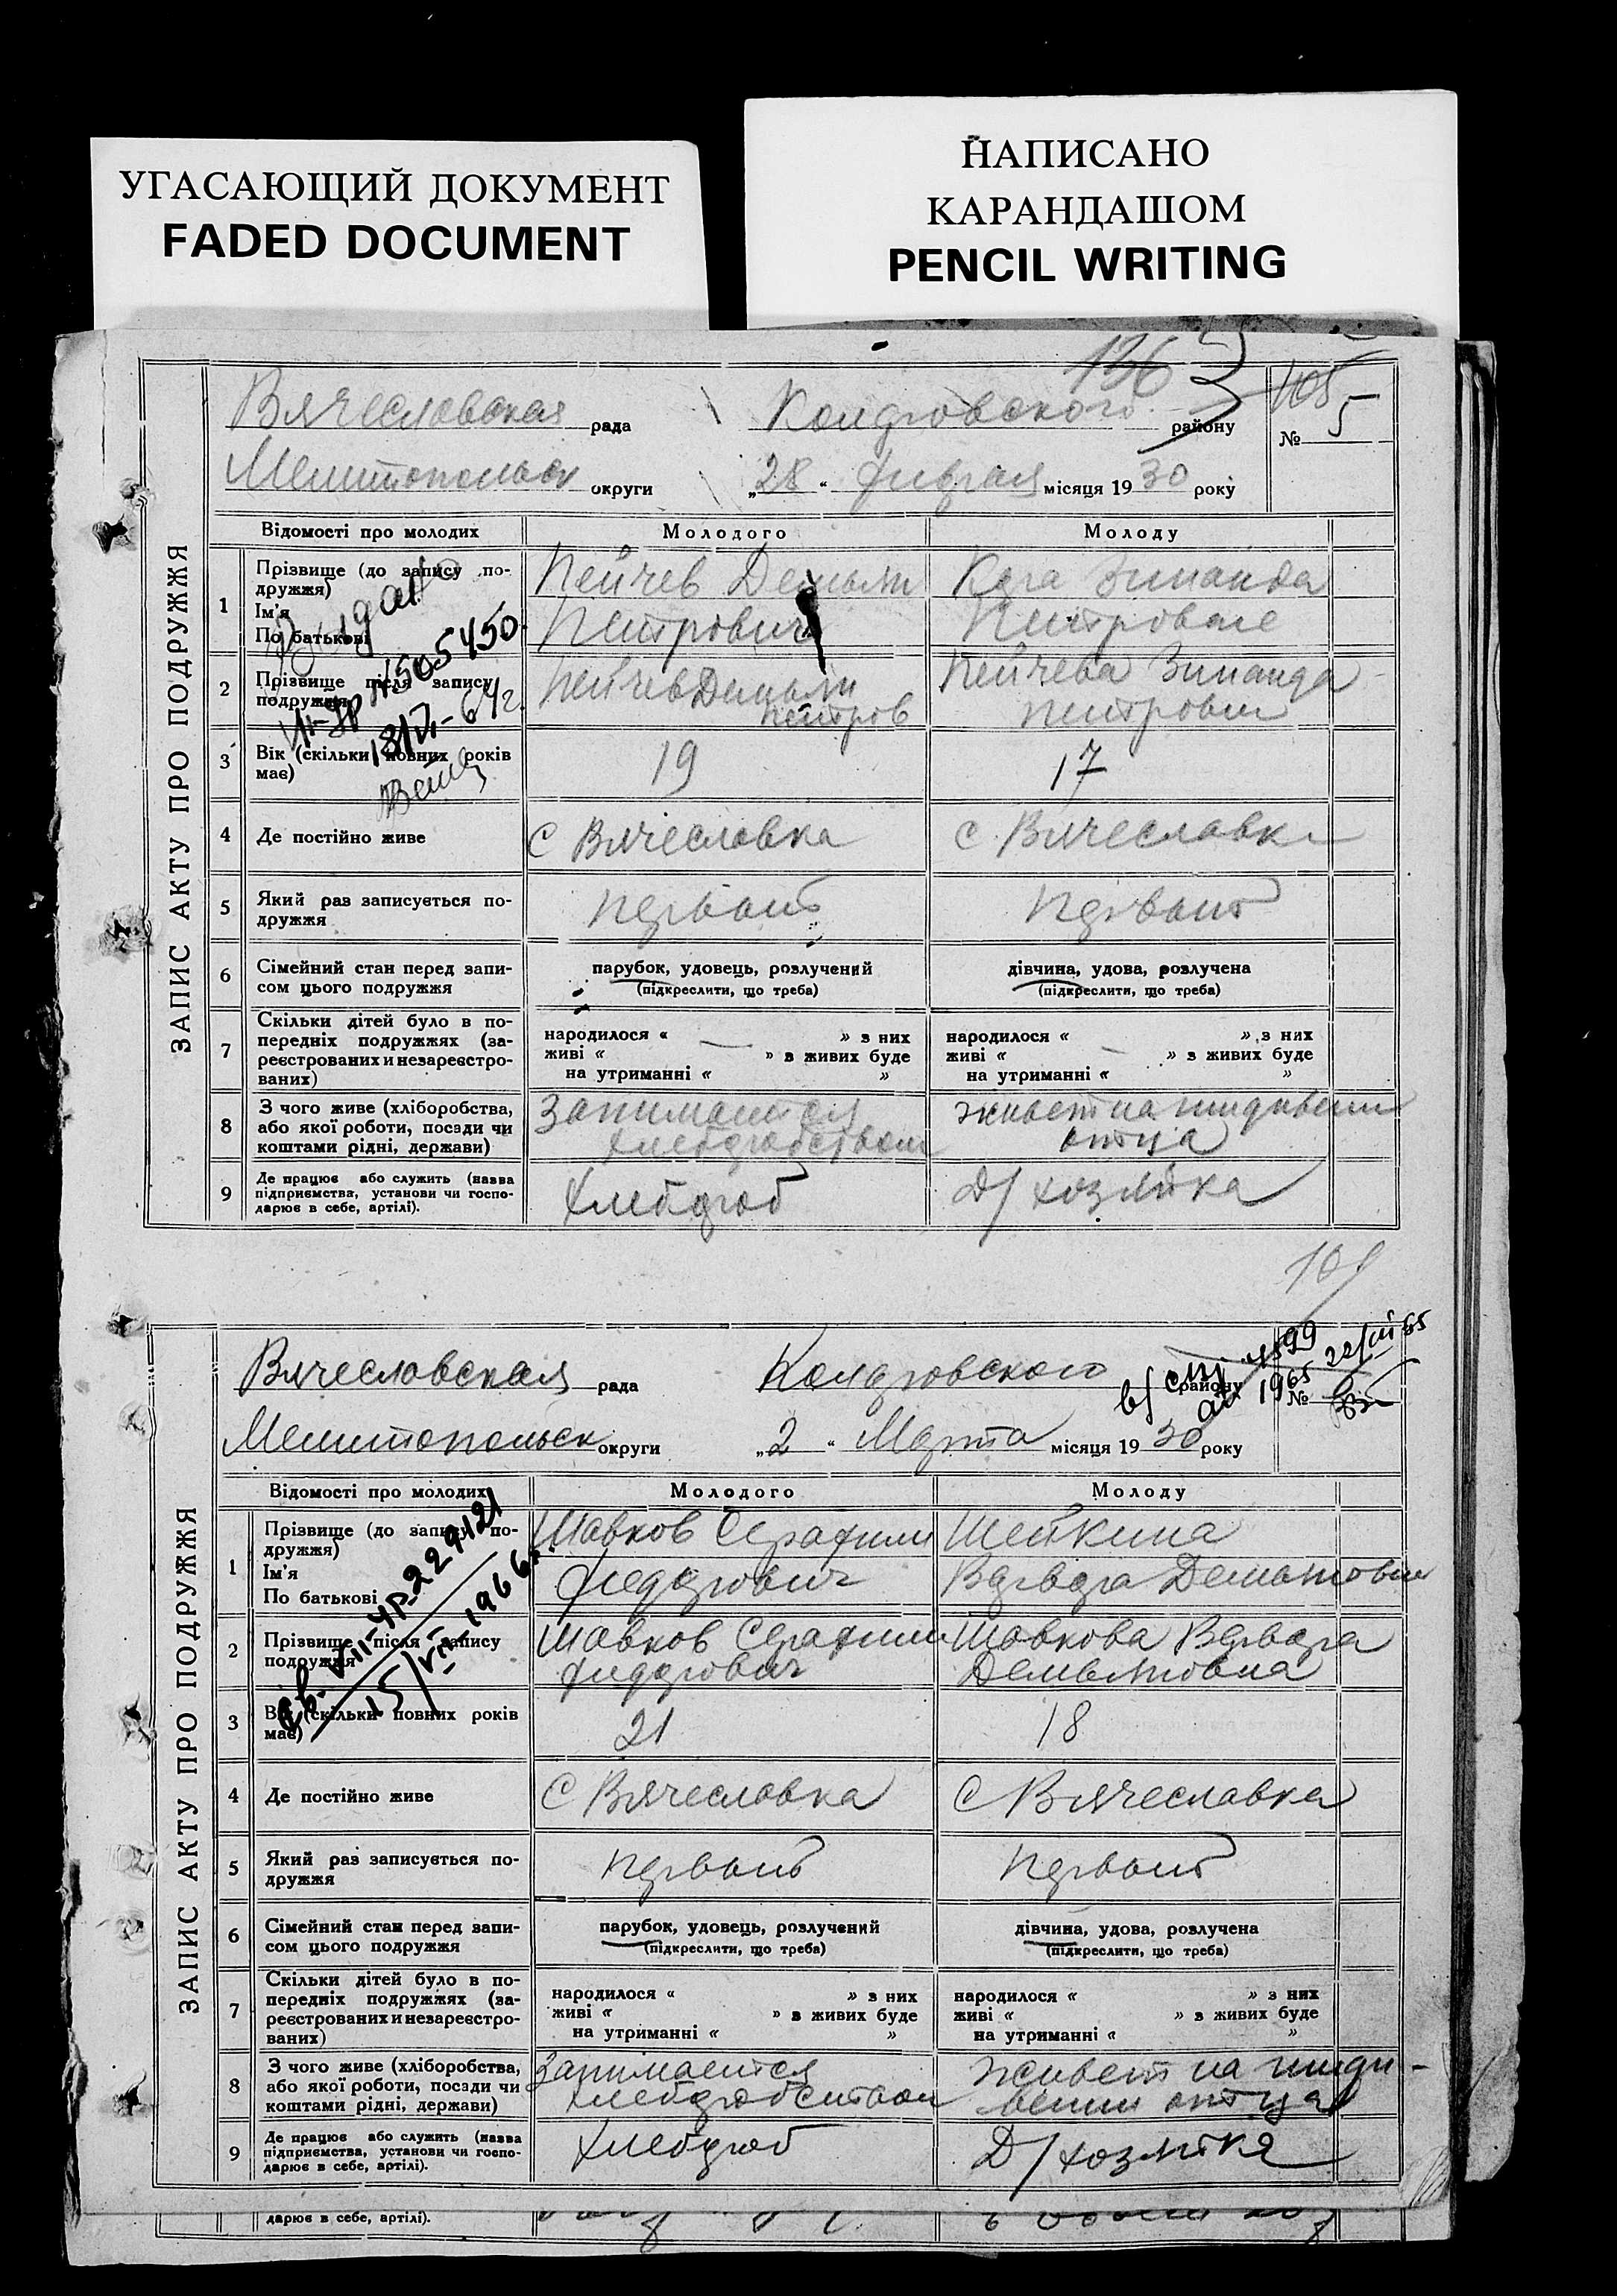 УГАСАЮЩИЙ ДОКУМЕНТ
FADED DOCUMENT
НАПИСАНО
КАРАНДАШОМ
PENCIL WRITING
136
ЗАПИС АКТУ ПРО ПОДРУЖЖЯ
Вячеславская рада
району
105
№ 5
Мелитопольск округи „28“ февраля місяця 1930 року
Відомості про молодих Молодого Молоду
1 Прізвище (до запису по-
дружжя)
Ім'я
По батькові
Пейчев Демьян
Петрович
Зинаида
Петровне
2 Прізвище після запису
подружжя
Пейчев Демьян
Петров
Пейчева Зинаида
Петровн
505450
18/VI-64г.
3 Вік (скільки повних років
має)
19 17
4 Де постійно живе С Вячеславка С. Вячеславка
5 Який раз записується по-
дружжя
первый первый
6 Сімейний стан перед запи-
сом цього подружжя
парубок, удовець, розлучений
(підкреслити, що треба)
дівчина, удова, розлучена
(підкреслити, що треба)
7 Скільки дітей було в по-
передніх подружжях (за-
реєстрованих и незареєстро-
ваних)
народилося « — » з них
живі « » з живих буде
на утриманні « »
народилося « — » з них
живі « » з живих буде
на утриманні « »
8 З чого живе (хліборобства,
або якої роботи, посади чи
коштами рідні, держави)
Занимается
хлеборобством
живет на иждивении
отца
9 Де працює або служить (назва
підприємства, установи чи госпо-
дарює в себе, артілі).
Хлебороб Д/хозяйка
ЗАПИС АКТУ ПРО ПОДРУЖЖЯ
Вячеславская рада
району
№
1965
Мелитопольск округи „2“ Марта місяця 1930 року
Відомості про молодих Молодого Молоду
1 Прізвище (до запису по-
дружжя)
Ім'я
По батькові
Шавков Серафим
Федорович
Шейкина
Варвара Демьяновн
2 Прізвище після запису
подружжя
Шавков Серафим
Федорович
Шавкова Варвара
Демьяновна
229121
15/VII-1966г.
3 Вік (скільки повних років
має)
21 18
4 Де постійно живе С Вячеславка С Вячеславка
5 Який раз записується по-
дружжя
первый первый
6 Сімейний стан перед запи-
сом цього подружжя
парубок, удовець, розлучений
(підкреслити, що треба)
дівчина, удова, розлучена
(підкреслити, що треба)
7 Скільки дітей було в по-
передніх подружжях (за-
реєстрованих и незареєстро-
ваних)
народилося « » з них
живі « » з живих буде
на утриманні « »
народилося « » з них
живі « » з живих буде
на утриманні « »
8 З чого живе (хліборобства,
або якої роботи, посади чи
коштами рідні, держави)
Занимается
хлеборобством
Живет на ижди-
вении отца
9 Де працює або служить (назва
підприємства, установи чи госпо-
дарює в себе, артілі).
Хлебороб Д/хозяйка
дарює в себе, артілі).